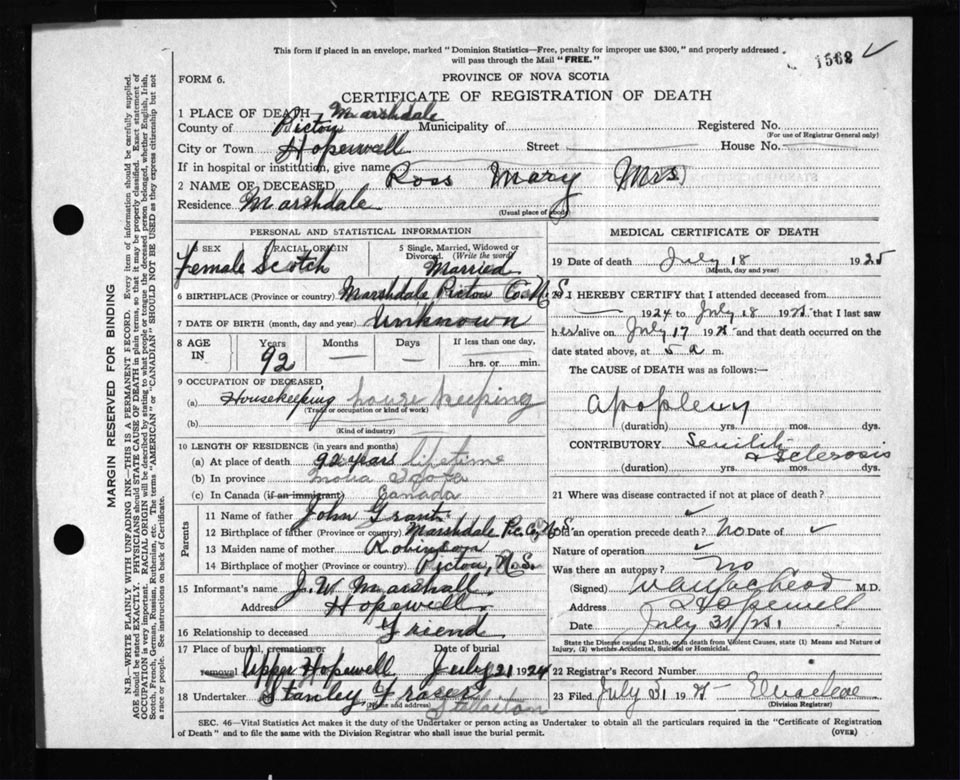 This form if placed in an envelope, marked "Dominion Statistics—Free, penalty for improper use $300," and properly addressed
will pass through the Mail "FREE."
1562
FORM 6.
PROVINCE OF NOVA SCOTIA
CERTIFICATE OF REGISTRATION OF DEATH
1 PLACE OF DEATH Marshdale
County of Pictou Municipality of Registered No.
(For use of Registrar General only)
City or Town Hopewell Street House No.
If in hospital or institution, give name
2 NAME OF DECEASED Ross Mary Mrs
Residence Marshdale
(Usual place of abode)
PERSONAL AND STATISTICAL INFORMATION
3 SEX RACIAL ORIGIN 5 Single, Married, Widowed or
Divorced. (Write the word)
Female Scotch Married
6 BIRTHPLACE (Province or country) Marshdale Pictou Co. N.S.
7 DATE OF BIRTH (month, day and year) Unknown
8 AGE IN Years Months Days If less than one day,
92 — — hrs. or min.
9 OCCUPATION OF DECEASED
(a) Housekeeping house keeping
(Trade or occupation or kind of work)
(b)
(Kind of industry)
10 LENGTH OF RESIDENCE (in years and months)
(a) At place of death 92 years lifetime
(b) In province Nova Scotia
(c) In Canada (if an immigrant) Canada
Parents
11 Name of father John Grant
12 Birthplace of father (Province or country) Marshdale Pic. Co, N.S.
13 Maiden name of mother Robinson
14 Birthplace of mother (Province or country) Pictou, N.S.
15 Informant's name J. W. Marshall
Address Hopewell
16 Relationship to deceased Friend
17 Place of burial, cremation or Date of burial
removal Upper Hopewell July 21 1924
18 Undertaker Stanley Fraser
(Name and address)
MEDICAL CERTIFICATE OF DEATH
19 Date of death July 18 1925
(Month, day and year)
20 I HEREBY CERTIFY that I attended deceased from
1924 to July 18 1925 that I last saw
her alive on July 17 1925 and that death occurred on the
date stated above, at 5 a m.
The CAUSE of DEATH was as follows:—
apoplexy
(duration) yrs. mos. dys.
CONTRIBUTORY Senility
& Sclerosis
(duration) yrs. mos. dys.
21 Where was disease contracted if not at place of death?
Did an operation precede death? No Date of
Nature of operation
Was there an autopsy? No
(Signed) M.D.
Address Hopewell
Date July 31/25
State the Disease causing Death, or in death from Violent Causes, state (1) Means and Nature of
Injury, (2) whether Accidental, Suicidal or Homicidal.
22 Registrar's Record Number
23 Filed July 31 1925
(Division Registrar)
SEC. 46—Vital Statistics Act makes it the duty of the Undertaker or person acting as Undertaker to obtain all the particulars required in the "Certificate of Registration
of Death" and to file the same with the Division Registrar who shall issue the burial permit.
(OVER)
MARGIN RESERVED FOR BINDING
N.B.—WRITE PLAINLY WITH UNFADING INK—THIS IS A PERMANENT RECORD. Every item of information should be carefully supplied.
AGE should be stated EXACTLY. PHYSICIANS should STATE CAUSE OF DEATH in plain terms, so that it may be properly classified. Exact statement of
OCCUPATION is very important. RACIAL ORIGIN will be described by stating to what people or tongue the deceased person belonged, whether English, Irish,
Scotch, French, German, Russian, Ruthenian, etc. The terms "AMERICAN" or "CANADIAN" SHOULD NOT BE USED as they express citizenship but not
a race or people. See instructions on back of Certificate.